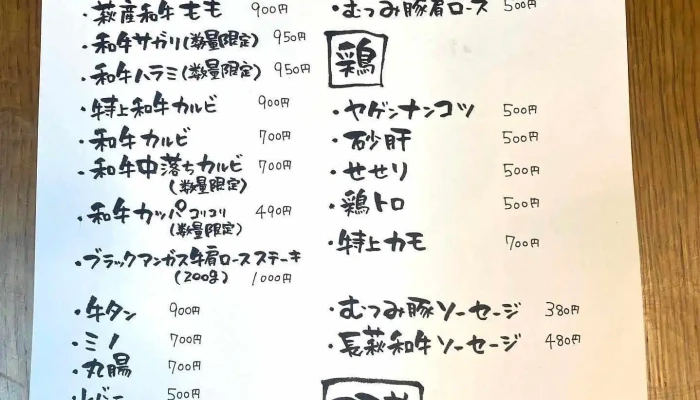 ・萩産和牛モモ 900円
・和牛サガリ(数量限定) 950円
・和牛ハラミ(数量限定) 950円
・特上和牛カルビ 900円
・和牛カルビ 700円
・和牛中落ちカルビ 700円
(数量限定)
・和牛カッパコリコリ 490円
(数量限定)
・ブラックアンガス牛肩ロースステーキ
(200g) 1000円
・牛タン 900円
・ミノ 700円
・丸腸 700円
・レバー 500円
・むつみ豚肩ロース 500円
鶏
・ヤゲンナンコツ 500円
・砂肝 500円
・せせり 500円
・鶏トロ 500円
・特上カモ 700円
・むつみ豚ソーセージ 380円
・長萩和牛ソーセージ 480円